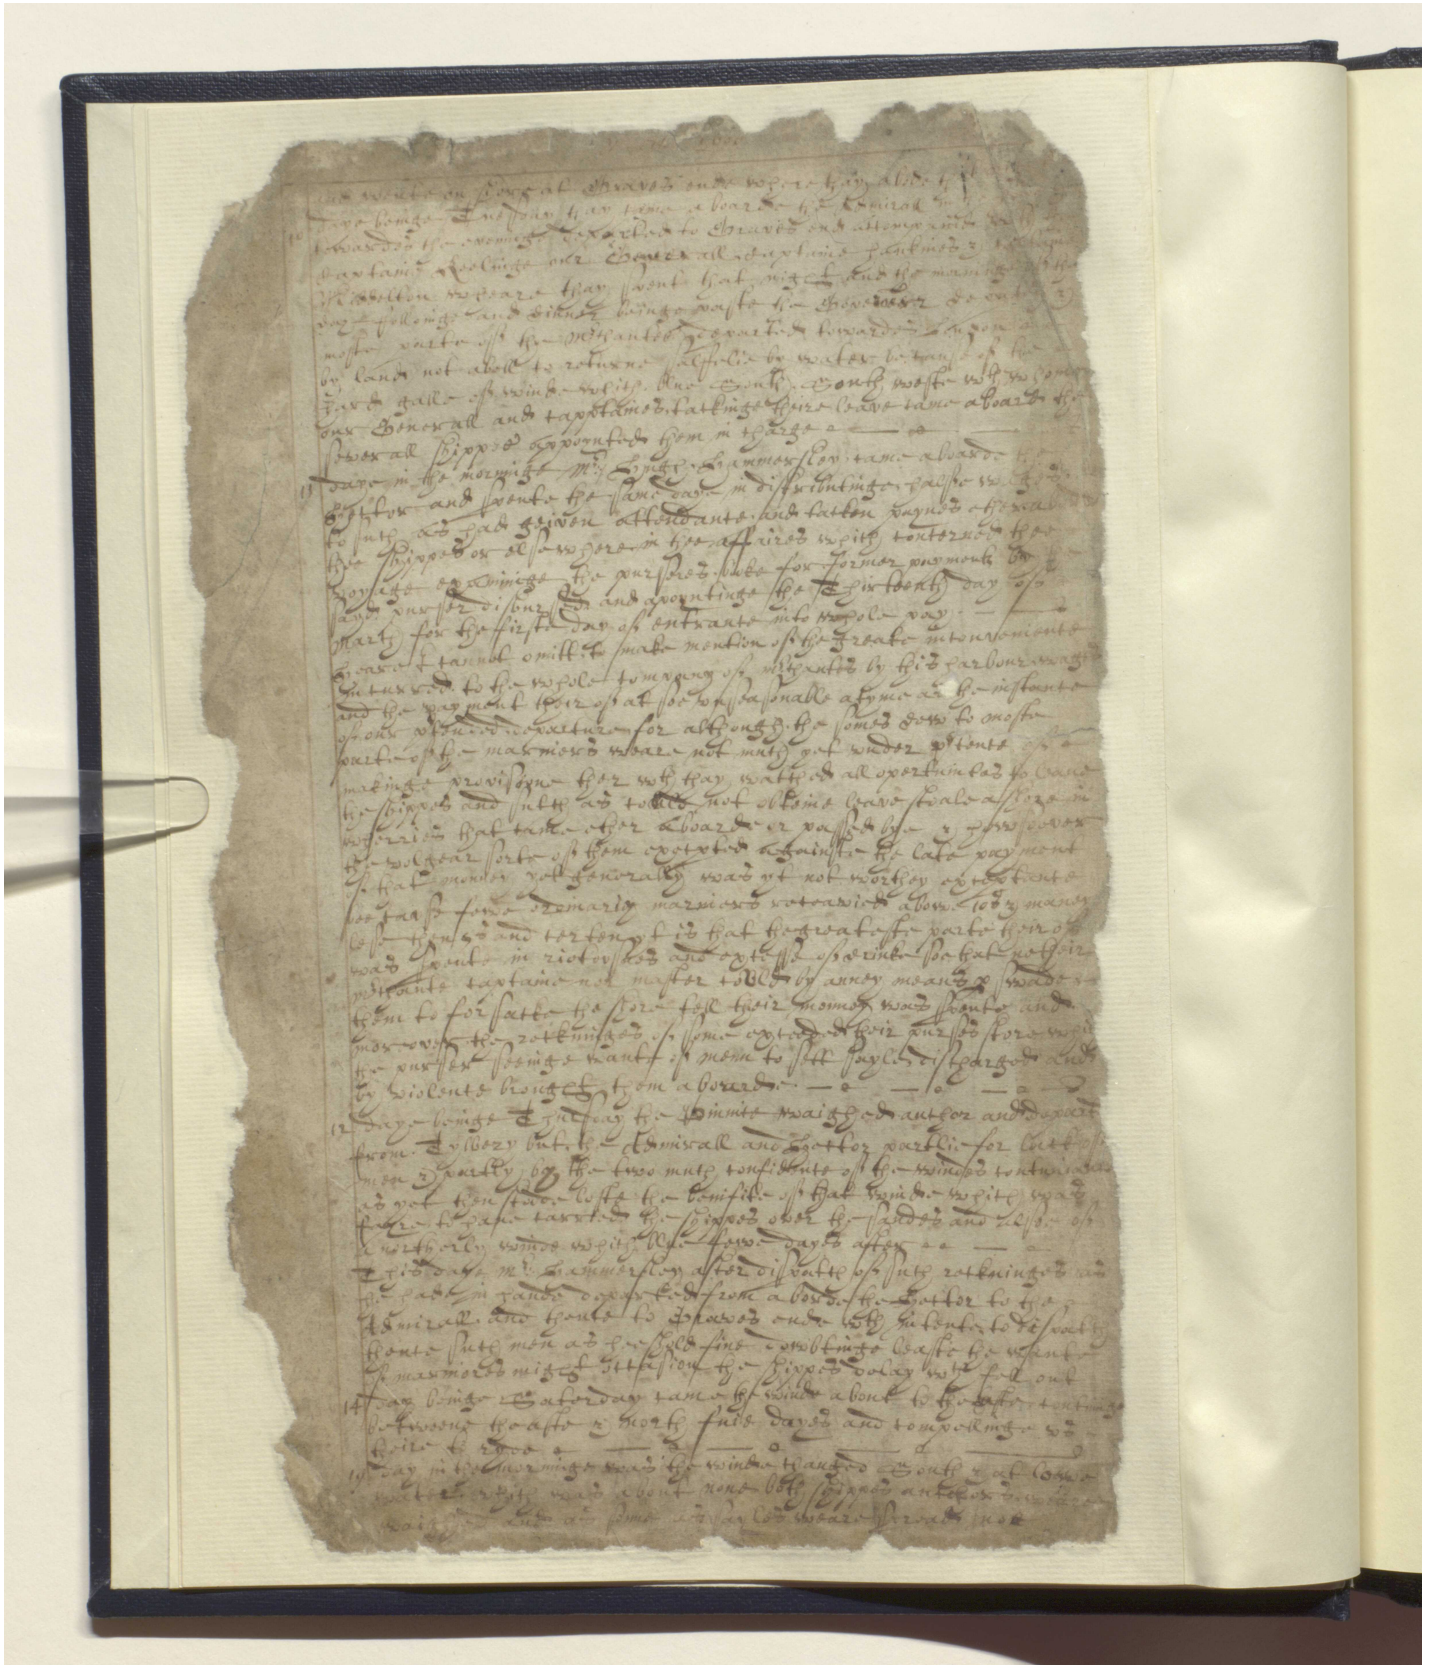 and wente on shore at Graves ende where thay abode th
10 daye beinge Tuesday thay came aboarde the Admirall
towardes the eveninge departed to Graves end accompanied
Captaine Keelinge our Generall Captaine Hawkines &
Middelton wheare thay spent that night and the morninge
day followige and dinner beinge paste the Governer
moste parte of the Mrchantes departed towardes London
by land not abell to returne salfelie by water because of the
hard galle of winde which blue South South weste wth whome
our Generall and capptaines tackinge theire leave came aboard the
severall shippes appoynted them in charge
11 daye in the morninge Mr Hugh Hammersley came aboarde the
Hecktor and spente the same daye in distributinge halfe wages
to such as had geiven attendance and tacken paynes ether aboard
thee shippes or elsewhere in thee affaires which concerned thee
voyage examininge the pursers booke for former payments by
sayd purser disbursed and apoyntinge the Thirteenth day of
March for the firste day of entrance into whole pay
heare I cannot omitt to make mention of the greate inconvenience
incurred to the whole company of mrchantes by this harbour wages
and the payment theirof at soe unseasonable atyme as the instante
of our ptended departure for although the somes dew to moste
parte of the mariners weare not much yet under ptence of
makinge provisione ther wth thay watched all opertunites to leave
the shippes and such as could not obteine leave stoale ashore in
wherries that came ether aboarde or passed bye & howsoever
the volgear sorte of them excepted againste the late payment
of that monney yet generally was yt not worthey exceptance
because fewe ordinarie mariners receavied above 10s & maney
lesse then 5s and certen yt is that the greateste parte theirof
was spente in riotousnes and excesse of drinke soe that nether
mrchante captaine nor master could by anney meanes pswade
them to forsacke the shore tell their monney was spente and
moreover the reckninges of some exceeded their purses store which
the purser seeinge wante of menn to sett sayle discharged and
by violence brought them aboarde
12 daye beinge Thursday the Pinnice waighed anchor and depart
from Tylbery but the Admirall and Hector partlie for lacke of
men & partly by the two much confidence of the windes continuance
as yet then stode loste the benifite of that winde which was
faire to have carried the shippes over the sandes and alsoe of
a northerly winde which blue fewe dayes after
This daye Mr Hammersley after dispatch of such reckninges as
he hade in hande departed from aborde the Hector to the
Admirall and thence to Graves ende wth intente to dispatch
thence such men as he shold fine dowbtinge leaste the wante
of marinores might occasion the shippes delay wch fell out
14 day beinge Saterday came the winde about to the easte
betweene the aste & north five dayes and compellinge us
theire to ryde
19 day in the morninge was the winde changed South & at lowe
water which was about none both shippes anchors weare
waighed and as some as sayles weare spread